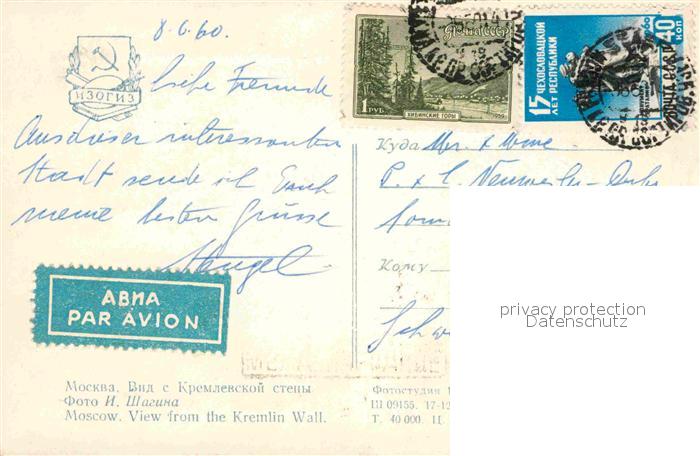 8.6.60.
ИЗОГИЗ
Liebe Freunde
Aus dieser interessanten
Stadt sende ich Euch
meine besten Grüsse
ПОЧТА СССР
1 РУБ
ХИБИНСКИЕ ГОРЫ
1959
15 ЧЕХОСЛОВАЦКОЙ
ЛЕТ РЕСПУБЛИКИ
40 КОП
ПОЧТА СССР
Куда Mr. x Mme.
P. x L.
Кому
privacy protection
Datenschutz
АВИА
PAR AVION
Москва. Вид с Кремлевской стены
Фото И. Шагина
Moscow. View from the Kremlin Wall.
Фотостудия
Ш 09155. 17-12
Т. 40 000. Ц.